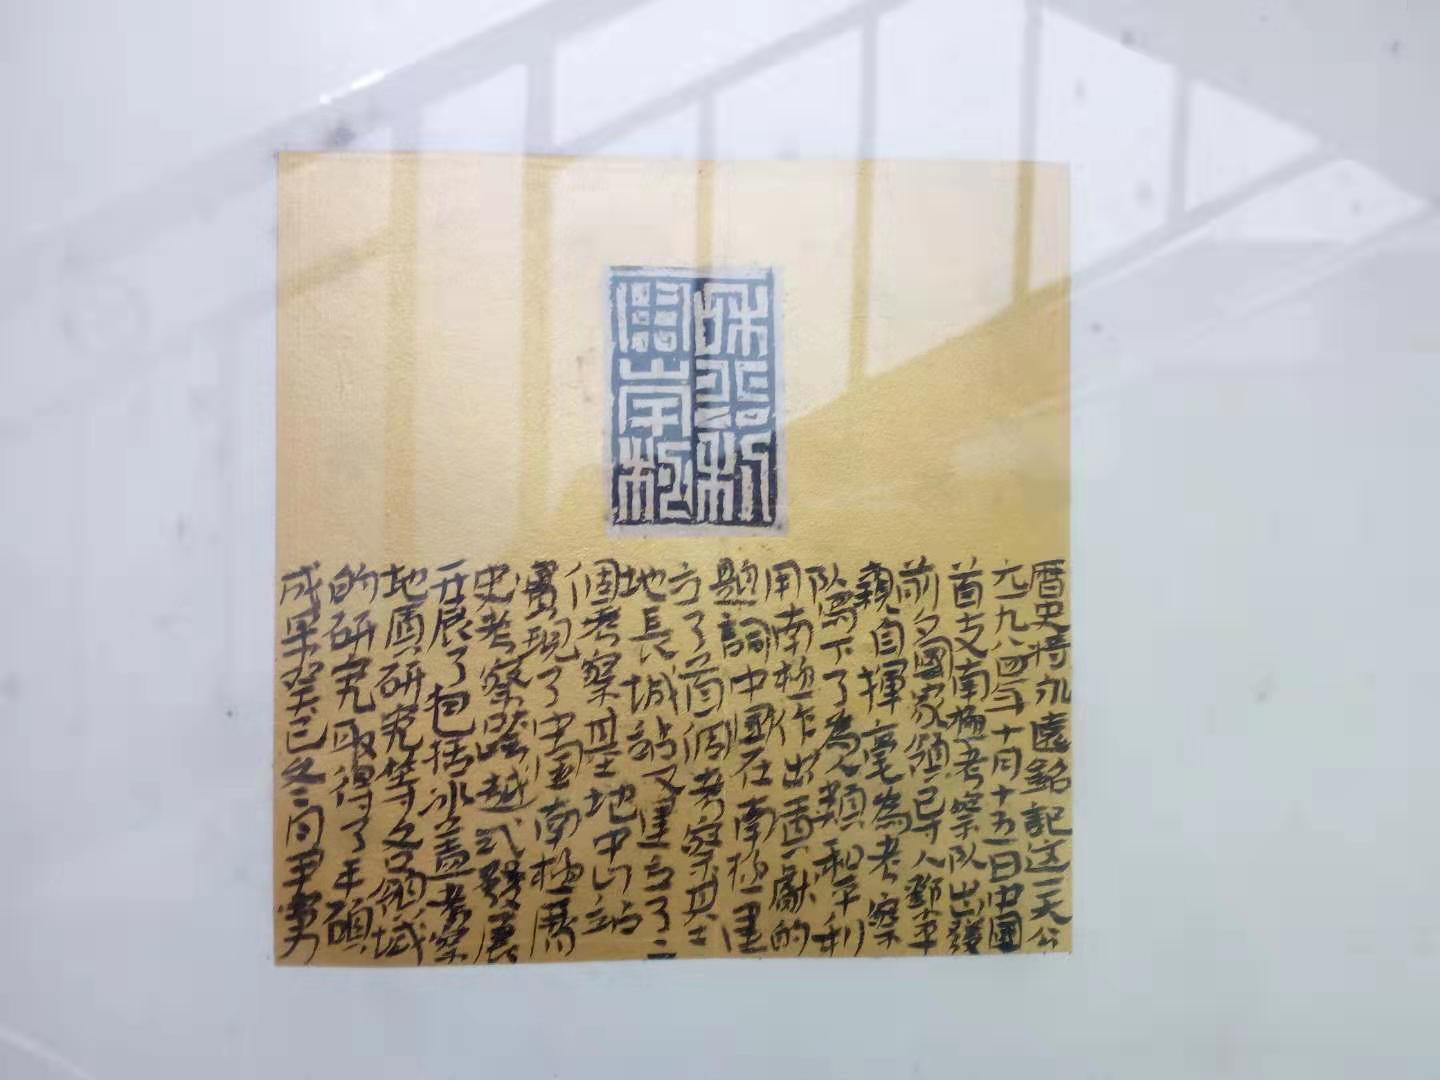 和平利
用南極
曆史將永遠銘記这一天公
元一九八四年十月十五日中國
首支南極考察队出發
前夕國家領导人鄧平
親自揮毫為考察
队寫下了為人類和平利
用南極作出貢獻的
題詞中國在南極建
立了首個考察基
地長城站又建立了二
個考察基地中山站
實現了中国南極歷
史考察跨越式發展
开展了包括冰蓋考察
地質研究等各領域
的研究取得了丰碩
成果癸巳冬